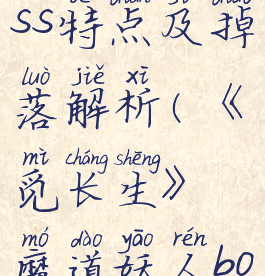 SS特点及掉
luò jiě xī
落解析(《
mì cháng shēng
觅长生》
mó dào yāo rén
魔道妖人bo